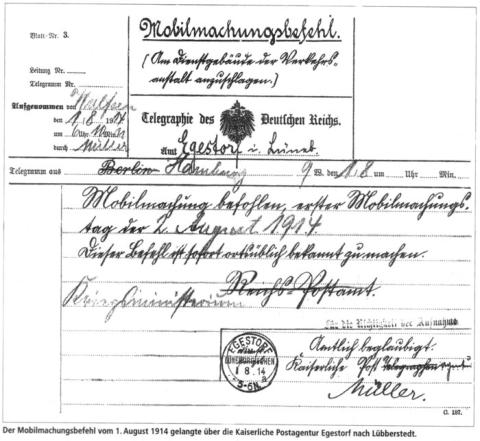 Blatt-Nr. 3.
Mobilmachungsbefehl.
(Am Dienstgebäude der Verkehrs-
anstalt anzuschlagen.)
Leitung Nr.
Telegramm Nr.
Aufgenommen von
den 1/8 1914
um Uhr Min.
durch Müller
Telegraphie des Deutschen Reichs.
Amt Egestorf i. Lüneb.
Telegramm aus Berlin Hamburg 9 W. den 1.8 um Uhr Min.
Mobilmachung befohlen, erster Mobilmachungs-
tag der 2. August 1914.
Dieser Befehl ist sofort ortsüblich bekannt zu machen.
Reichs-Postamt.
Kriegsministerium
Für die Richtigkeit der Aufnahme
Amtlich beglaubigt.
Kaiserliche Post
Müller.
EGESTORF
1 8.14
5-6N
C. 187.
Der Mobilmachungsbefehl vom 1. August 1914 gelangte über die Kaiserliche Postagentur Egestorf nach Lübberstedt.